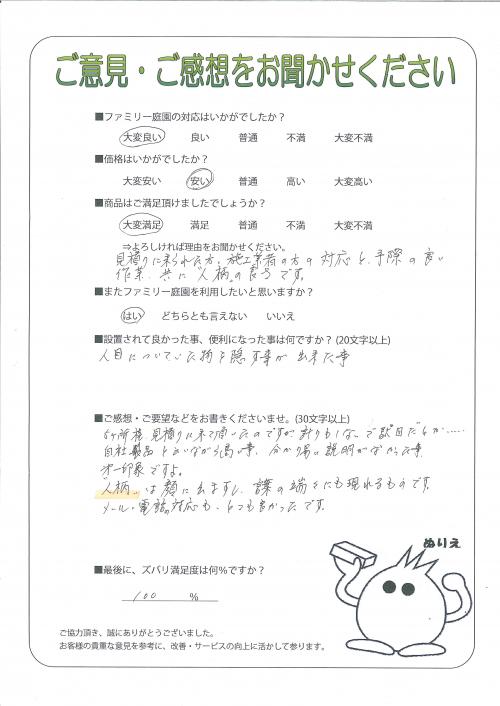 ご意見・ご感想をお聞かせください
■ファミリー庭園の対応はいかがでしたか?
大変良い 良い 普通 不満 大変不満
■価格はいかがでしたか?
大変安い 安い 普通 高い 大変高い
■商品はご満足頂けましたでしょうか?
大変満足 満足 普通 不満 大変不満
⇒よろしければ理由をお聞かせください。
見積りに来られた方、施工業者の方の対応と、手際の良い
作業、共に"人柄"の良さです。
■またファミリー庭園を利用したいと思いますか?
はい どちらとも言えない いいえ
■設置されて良かった事、便利になった事は何ですか?(20文字以上)
人目についていた物を隠す事が出来た事
■ご感想・ご要望などをお書きくださいませ。(30文字以上)
5ヶ所程見積りに来て頂いたのですが
自社製品とかいながら高い事、分かり易い説明がなかった事
第一印象ですよ。
"人柄"は顔に出ますし、言葉の端々にも現れるものです。
メール・電話の対応も、とても良かったです。
ぬりえ
■最後に、ズバリ満足度は何%ですか?
100 %
ご協力頂き、誠にありがとうございました。
お客様の貴重な意見を参考に、改善・サービスの向上に活かして参ります。